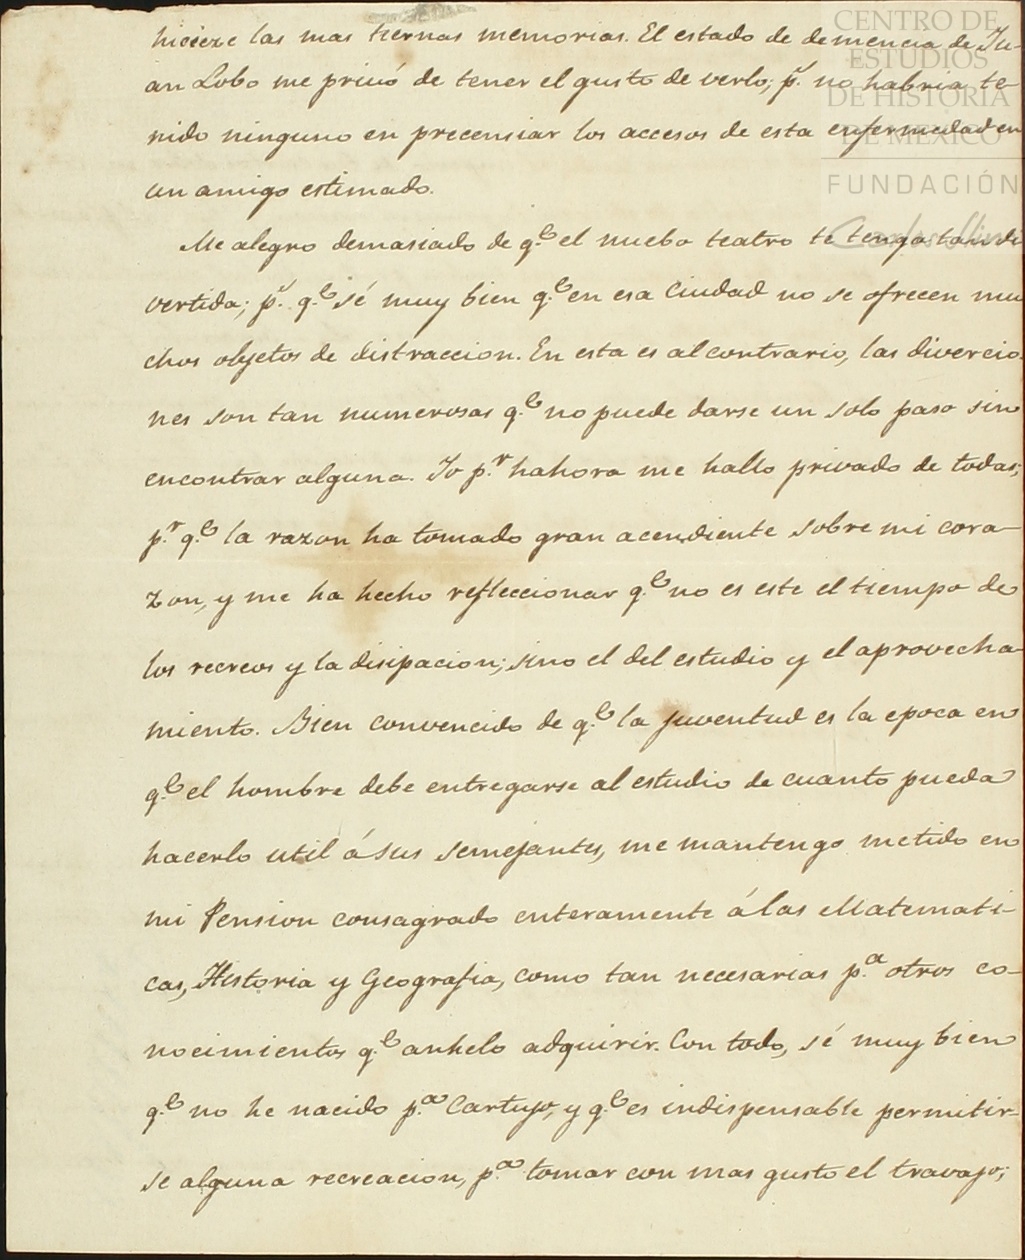 CENTRO DE
ESTUDIOS
DE HISTORIA
DE MEXICO
FUNDACIÓN
Carlos Slim
hiciere las mas tiernas memorias. El estado de demencia de Ju-
an Lobo me privó de tener el gusto de verlo; p.s no habria te-
nido ninguno en precensiar los accesos de esta enfermedad en
un amigo estimado.
Me alegro demasiado de q.e el nuebo teatro te tenga tan di
vertida; p.s q.e sé muy bien q.e en esa Ciudad no se ofrecen mu
chos objetos de distraccion. En esta es al contrario, las divercio
nes son tan numerosas q.e no puede darse un solo paso sin
encontrar alguna. Yo p.r hahora me hallo privado de todas;
p.r q.e la razon ha tomado gran acendiente sobre mi cora-
zon, y me ha hecho refleccionar q.e no es este el tiempo de
los recreos y la disipacion; sino el del estudio y el aprovecha-
miento. Bien convencido de q.e la juventud es la epoca en
q.e el hombre debe entregarse al estudio de cuanto pueda
hacerlo util á sus semejantes, me mantengo metido en
mi Pension consagrado enteramente á las Matemati-
cas, Historia y Geografia, como tan necesarias p.a otros co-
nocimientos q.e anhelo adquirir. Con todo, sé muy bien
q.e no he nacido p.a Cartujo, y q.e es indispensable permitir-
se alguna recreacion, p.a tomar con mas gusto el travajo;